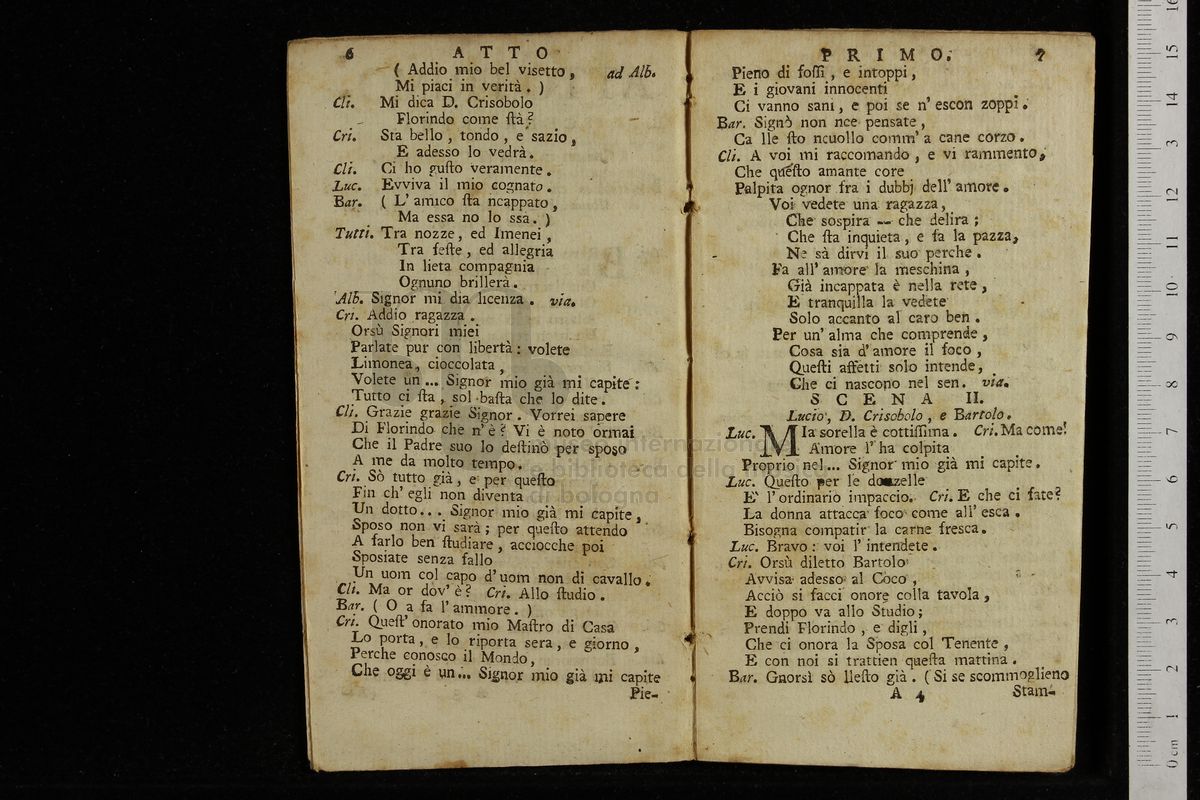 6 ATTO
( Addio mio bel visetto, ad Alb.
Mi piaci in verità. )
Cli. Mi dica D. Crisobolo
Florindo come ſtà?
Cri. Sta bello, tondo, e sazio,
E adesso lo vedrà.
Cli. Ci ho guſto veramente.
Luc. Evviva il mio cognato.
Bar. ( L' amico ſta ncappato,
Ma essa no lo ssa. )
Tutti. Tra nozze, ed Imenei,
Tra feſte, ed allegria
In lieta compagnia
Ognuno brillerà.
Alb. Signor mi dia licenza. via.
Cri. Addio ragazza.
Orsù Signori miei
Parlate pur con libertà: volete
Limonea, cioccolata,
Volete un... Signor mio già mi capite:
Tutto ci ſta, sol baſta che lo dite.
Cli. Grazie grazie Signor. Vorrei sapere
Di Florindo che n' è? Vi è noto ormai
Che il Padre suo lo deſtinò per sposo
A me da molto tempo.
Cri. Sò tutto già, e per queſto
Fin ch' egli non diventa
Un dotto... Signor mio già mi capite,
Sposo non vi sarà; per queſto attendo
A farlo ben ſtudiare, acciocche poi
Sposiate senza fallo
Un uom col capo d' uom non di cavallo.
Cli. Ma or dov' è? Cri. Allo ſtudio.
Bar. ( O a fa l' ammore. )
Cri. Queſt' onorato mio Maſtro di Casa
Lo porta, e lo riporta sera, e giorno,
Perche conosco il Mondo,
Che oggi è un... Signor mio già mi capite
Pie-
PRIMO. 7
Pieno di foſſi, e intoppi,
E i giovani innocenti
Ci vanno sani, e poi se n' escon zoppi.
Bar. Signò non nce pensate,
Ca lle ſto ncuollo comm' a cane corzo.
Cli. A voi mi raccomando, e vi rammento,
Che queſto amante core
Palpita ognor fra i dubbj dell' amore.
Voi vedete una ragazza,
Che sospira — che delira;
Che ſta inquieta, e fa la pazza,
Ne sà dirvi il suo perche.
Fa all' amore la meschina,
Già incappata è nella rete,
E tranquilla la vedete
Solo accanto al caro ben.
Per un' alma che comprende,
Cosa sia d' amore il foco,
Queſti affetti solo intende,
Che ci nascono nel sen. via.
SCENA II.
Lucio, D. Crisobolo, e Bartolo.
Luc. MIa sorella è cottiſſima. Cri. Ma come!
Amore l' ha colpita
Proprio nel... Signor mio già mi capite.
Luc. Queſto per le donzelle
E' l' ordinario impaccio. Cri. E che ci fate?
La donna attacca foco come all' esca.
Bisogna compatir la carne fresca.
Luc. Bravo: voi l' intendete.
Cri. Orsù diletto Bartolo
Avvisa adesso al Coco,
Acciò si facci onore colla tavola,
E doppo va allo Studio;
Prendi Florindo, e digli,
Che ci onora la Sposa col Tenente,
E con noi si trattien queſta mattina.
Bar. Gnorsì sò lleſto già. (Si se scommoglieno
A 4 Stam-
museo internazionale
e biblioteca della musica
di bologna